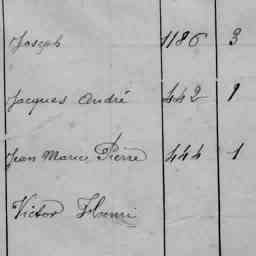 Joseph 1186 3
Jacques André 442 1
Jean Marie Pierre 444 1
Victor Henri